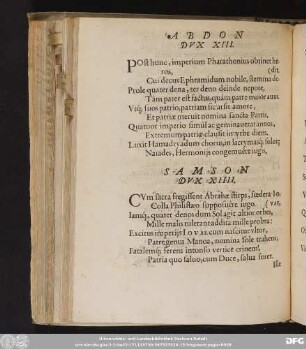 ABDON
DVX XIII.
POst hunc, imperium Pharathonius obtinet heros,
(dit.
Cui decus Ephraimidum nobile, stemma
Prole quater dena, ter deno deinde nepote,
Tam pater est factus, quàm patre maior
suos patrio, patriam sic arsit amore,
Et patriæ meruit nomina sancta Patris.
Quatuor imperio simul ac geminaverat annos,
Extremum patriæ clausit in vrbe diem.
Luxit Hamadryadum chorus, in lacrymasq; solutæ
Naiades, Hermonijs congemuêre iugis.
SAMSON
DVX XIIII.
CVm sacra fregissent Abrahæ stirps, fœdera Iovæ,
Colla Philistæo supposuêre iugo.
Iamq; quater denos dum Sol agit altior orbes,
Mille malis tolerant addita mille probra:
Excitus imperijs Iovæ cum nascitur vltor,
Patre genitus Manoa, nomina sole trahens,
Fatalemq; ferens intonso vertice crinem,
Patria quo salvo, cum Duce, salua fuit.